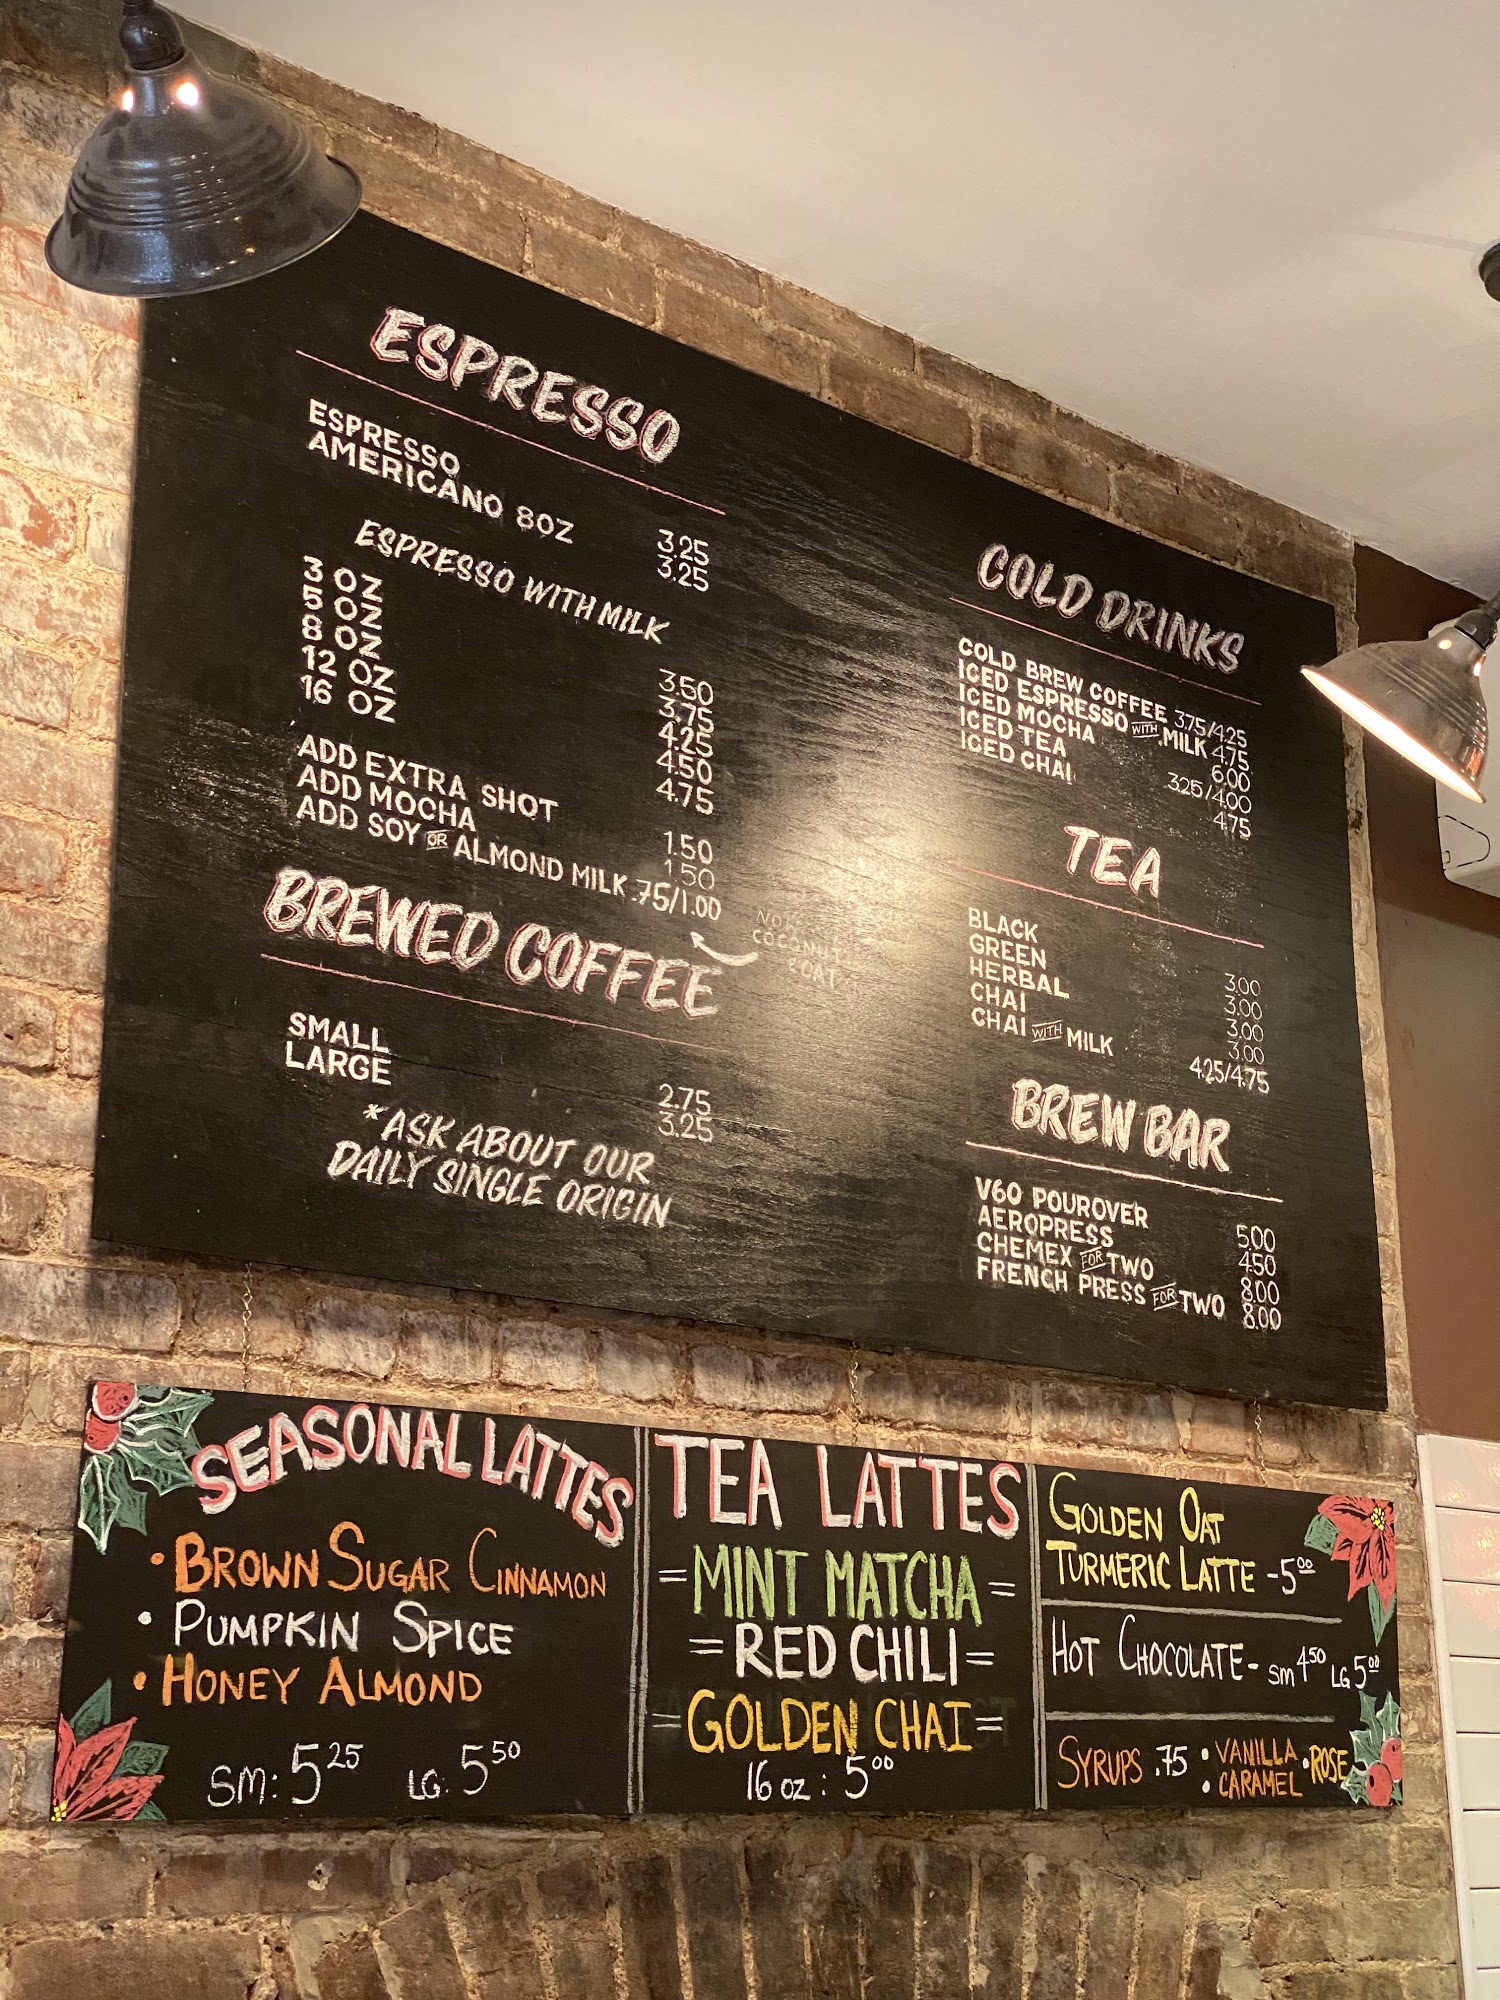 ESPRESSO
ESPRESSO 3.25
AMERICANO 8OZ 3.25
ESPRESSO WITH MILK
3 OZ 3.50
5 OZ 3.75
8 OZ 4.25
12 OZ 4.50
16 OZ 4.75
ADD EXTRA SHOT 1.50
ADD MOCHA 1.50
ADD SOY OR ALMOND MILK .75/1.00
COCONUT
& OAT
BREWED COFFEE
SMALL 2.75
LARGE 3.25
*ASK ABOUT OUR
DAILY SINGLE ORIGIN
COLD DRINKS
COLD BREW COFFEE 3.75/4.25
ICED ESPRESSO WITH MILK 4.75
ICED MOCHA 6.00
ICED TEA 3.25/4.00
ICED CHAI 4.75
TEA
BLACK 3.00
GREEN 3.00
HERBAL 3.00
CHAI 3.00
CHAI WITH MILK 4.25/4.75
BREW BAR
V60 POUROVER 5.00
AEROPRESS 4.50
CHEMEX FOR TWO 8.00
FRENCH PRESS FOR TWO 8.00
SEASONAL LATTES
• BROWN SUGAR CINNAMON
• PUMPKIN SPICE
• HONEY ALMOND
SM: 5.25 LG: 5.50
TEA LATTES
=MINT MATCHA=
=RED CHILI=
=GOLDEN CHAI=
16 OZ: 5.00
GOLDEN OAT
TURMERIC LATTE -5.00
HOT CHOCOLATE- SM 4.50 LG 5.00
SYRUPS .75 • VANILLA • ROSE
• CARAMEL